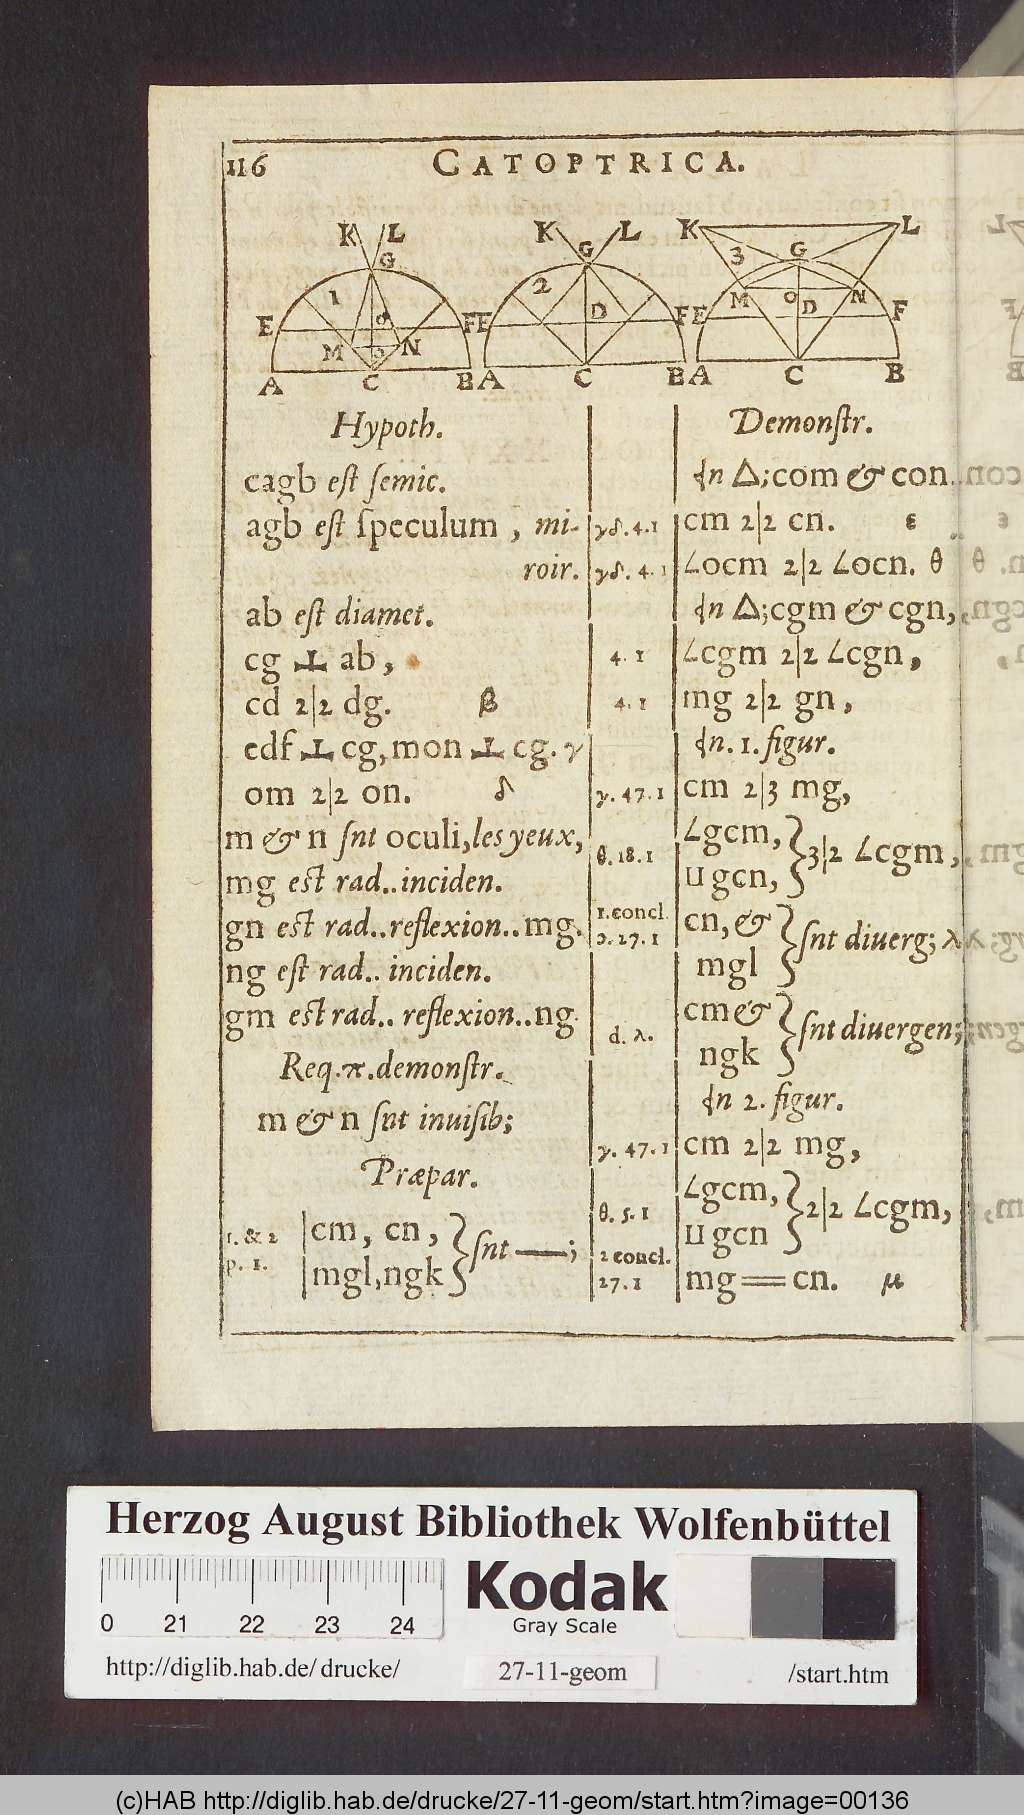 116 CATOPTRICA.
K L G 1 E F M o N D A C B
K L G 2 E F D A C B
K L 3 G M o N D E F A C B
Hypoth.
cagb est ſemic.
agb est ſpeculum, mi-
roir.
ab est diamet.
cg ⊥ ab,
cd 2|2 dg. β
edf ⊥ cg, mon ⊥ cg. γ
om 2|2 on. δ
m & n ſnt oculi, les yeux,
mg est rad..inciden.
gn est rad..reflexion..mg.
ng est rad.. inciden.
gm est rad.. reflexion..ng.
Req.π.demonſtr.
m & n ſnt inuiſib;
Præpar.
1. & 2 p. 1. | cm, cn, } ſnt —;
| mgl,ngk }
Demonſtr.
In Δ;com & con.
γδ.4.1 cm 2|2 cn. ε
γδ.4.1 ∠ocm 2|2 ∠ocn. θ
In Δ;cgm & cgn,
4. 1 ∠cgm 2|2 ∠cgn,
4. 1 mg 2|2 gn,
In. 1. figur.
γ. 47. 1 cm 2|3 mg,
θ. 18. 1 ∠gcm, } 3|2 ∠cgm,
⊔ gcn, }
1.concl. cn, & } ſnt diuerg; λ
ɔ. 27. 1 mgl }
d. λ. cm & } ſnt diuergen;
ngk }
In 2. figur.
γ. 47. 1 cm 2|2 mg,
θ. 5. 1 ∠gcm, } 2|2 ∠cgm,
⊔ gcn }
2 concl. 27. 1 mg = cn. μ
Herzog August Bibliothek Wolfenbüttel
0 21 22 23 24
Kodak
Gray Scale
http://diglib.hab.de/drucke/ 27-11-geom /start.htm
(c)HAB http://diglib.hab.de/drucke/27-11-geom/start.htm?image=00136